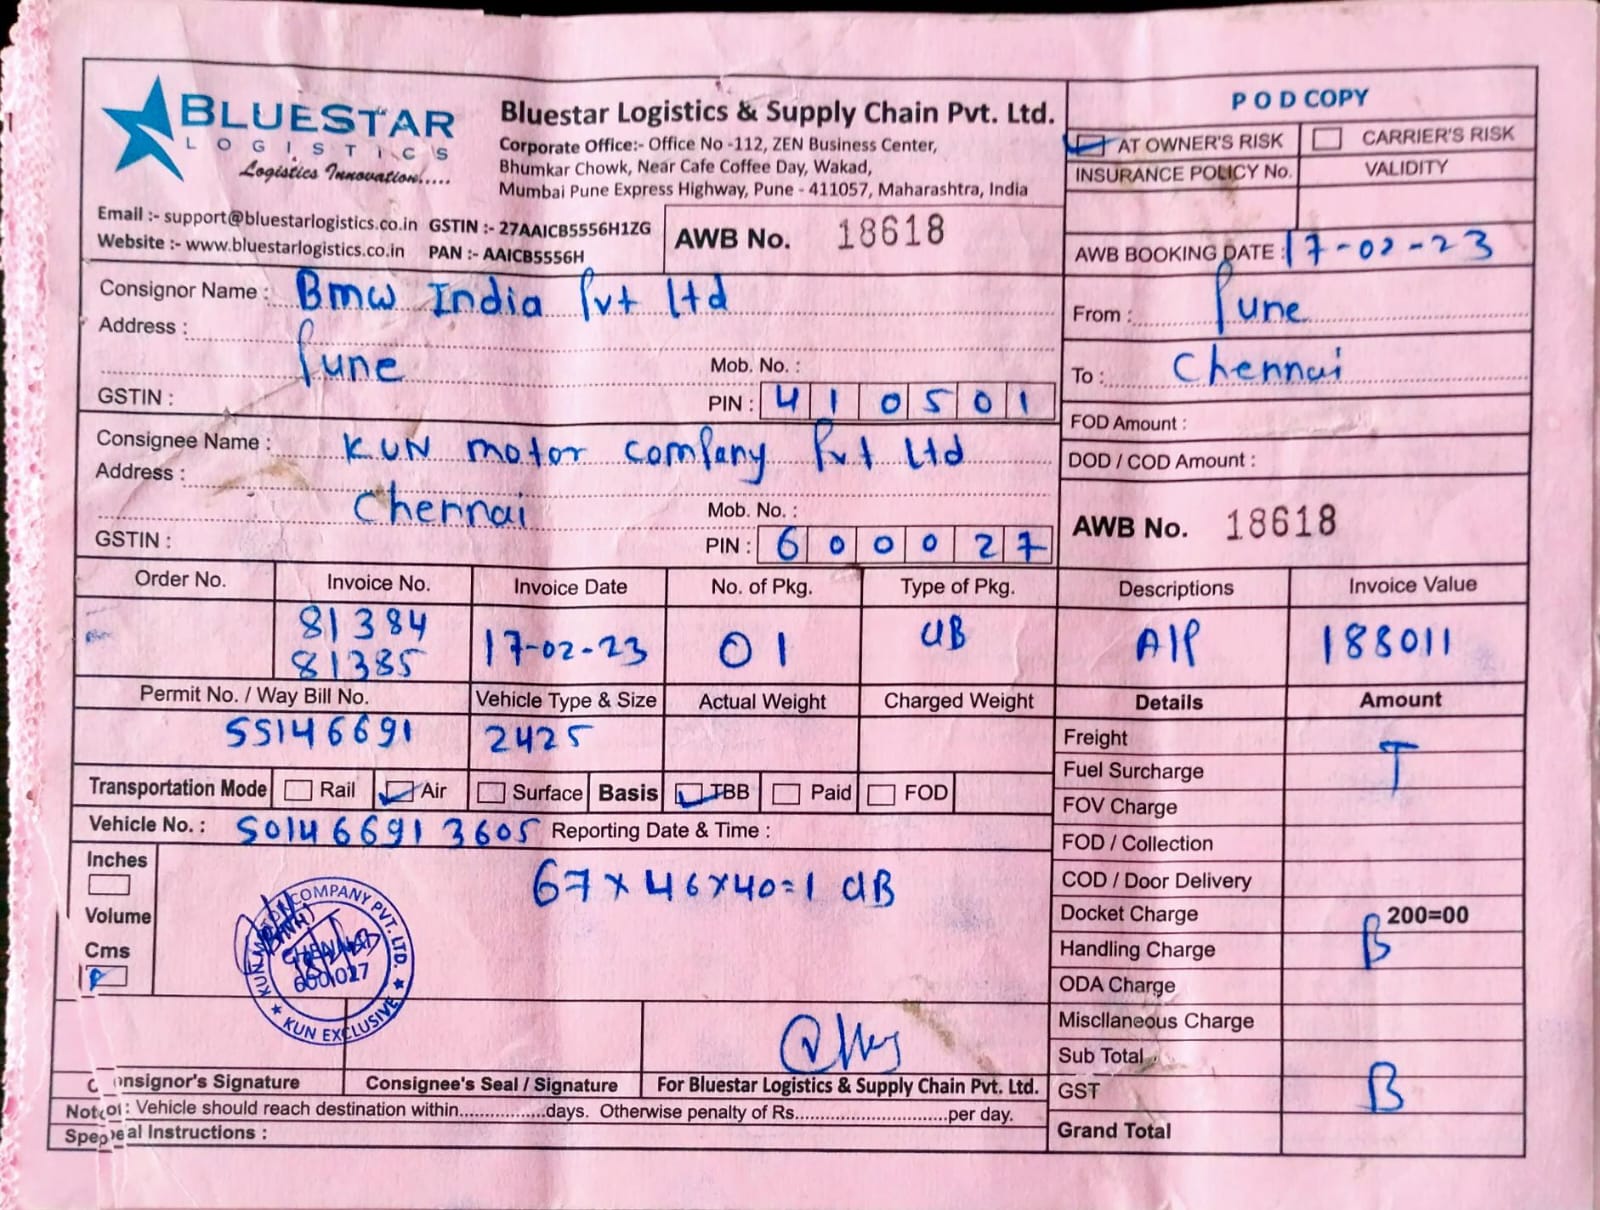 BLUESTAR
LOGISTICS
Logistics Innovation.....
Bluestar Logistics & Supply Chain Pvt. Ltd.
Corporate Office:- Office No -112, ZEN Business Center,
Bhumkar Chowk, Near Cafe Coffee Day, Wakad,
Mumbai Pune Express Highway, Pune - 411057, Maharashtra, India
Email :- support@bluestarlogistics.co.in GSTIN :- 27AAICB5556H1ZG
Website :- www.bluestarlogistics.co.in PAN :- AAICB5556H
AWB No. 18618
P O D COPY
AT OWNER'S RISK CARRIER'S RISK
INSURANCE POLICY No. VALIDITY
AWB BOOKING DATE : 17-02-23
From : Pune
To : Chennai
FOD Amount :
DOD / COD Amount :
AWB No. 18618
Consignor Name : Bmw India Pvt Ltd
Address :
Pune Mob. No. :
GSTIN : PIN : 410501
Consignee Name : KUN motor company Pvt Ltd
Address :
Chennai Mob. No. :
GSTIN : PIN : 600027
Order No. Invoice No. Invoice Date No. of Pkg. Type of Pkg. Descriptions Invoice Value
81384
81385 17-02-23 01 UB AIP 188011
Permit No. / Way Bill No. Vehicle Type & Size Actual Weight Charged Weight Details Amount
SS146691 2425
Freight
Fuel Surcharge T
FOV Charge
FOD / Collection
COD / Door Delivery
Docket Charge 200=00
Handling Charge B
ODA Charge
Miscllaneous Charge
Sub Total
GST B
Grand Total
Transportation Mode Rail Air Surface Basis TBB Paid FOD
Vehicle No. : SO146691 3605 Reporting Date & Time :
Inches
Volume
Cms
67 x 46 x 40 = 1 UB
KUN MOTOR COMPANY PVT. LTD.
CHENNAI
600 027
★ KUN EXCLUSIVE ★
Consignor's Signature Consignee's Seal / Signature For Bluestar Logistics & Supply Chain Pvt. Ltd.
Note : Vehicle should reach destination within................days. Otherwise penalty of Rs............................per day.
Special Instructions :